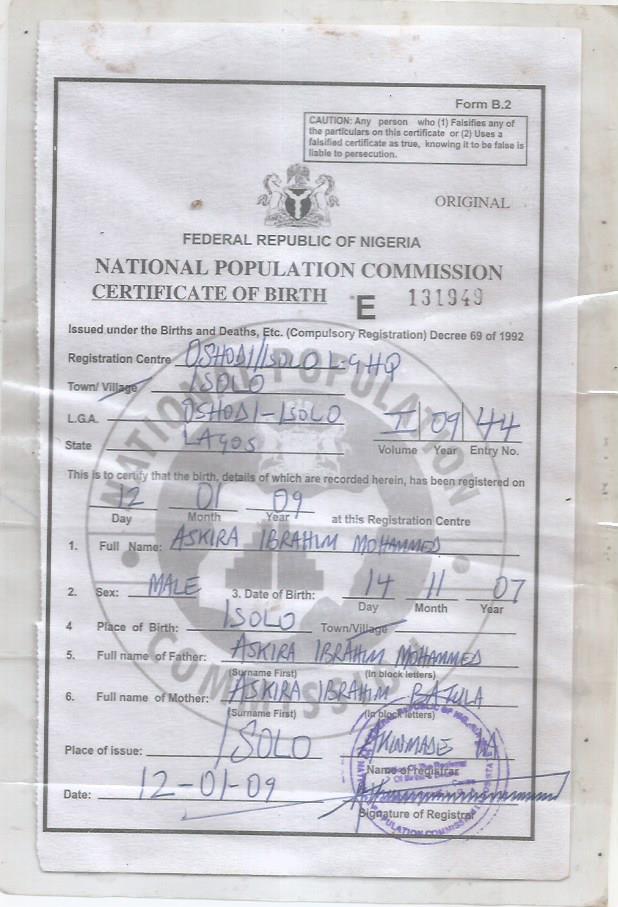 Form B.2
CAUTION: Any person who (1) Falsifies any of
the particulars on this certificate or (2) Uses a
falsified certificate as true, knowing it to be false is
liable to persecution.
ORIGINAL
FEDERAL REPUBLIC OF NIGERIA
NATIONAL POPULATION COMMISSION
CERTIFICATE OF BIRTH E 131949
Issued under the Births and Deaths, Etc. (Compulsory Registration) Decree 69 of 1992
Registration Centre OSHODI/ISOLO L-G HQ
Town/ Village ISOLO
L.G.A. OSHODI-ISOLO II 09 44
Volume Year Entry No.
State LAGOS
This is to certify that the birth, details of which are recorded herein, has been registered on
12 01 09
Day Month Year at this Registration Centre
1. Full Name: ASKIRA IBRAHIM MOHAMMED
2. Sex: MALE 3. Date of Birth: 14 11 07
Day Month Year
4 Place of Birth: ISOLO Town/Village
5. Full name of Father: ASKIRA IBRAHIM MOHAMMED
(Surname First) (In block letters)
6. Full name of Mother: ASKIRA IBRAHIM
(Surname First) (In block letters)
Place of issue: ISOLO AKINMADE
Name of registrar
Date: 12-01-09
Signature of Registrar
NATIONAL POPULATION COMMISSION